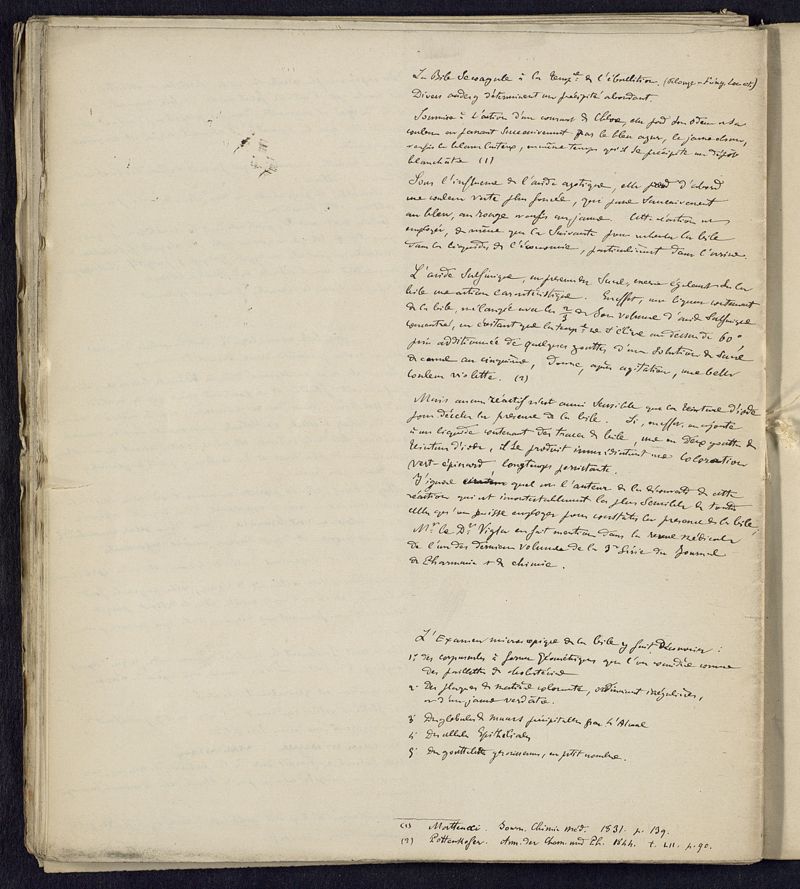 La Bile se coagule à la temp.re de l'ébullition. (Pelouze et Frémy, loc. cit.)
Divers acides y déterminent un précipité abondant.
Soumise à l'action d'un courant de Chlore, elle perd son odeur et sa
couleur en passant successivement par le bleu azur, le jaune clair,
enfin le blanc laiteux, en même temps qu'il se précipite un dépôt
blanchâtre (1)
Sous l'influence de l'acide azotique, elle prend d'abord
une couleur verte plus foncée, qui passe successivement
au bleu, au rouge enfin au jaune. Cette réaction est
employée, de même que la Suivante pour rechercher la bile
dans les liquides de l'économie, particulièrement dans l'urine.
L'acide Sulfurique, en présence du Sucre, exerce également sur la
bile une action caractéristique. En effet, une liqueur contenant
de la bile, mélangée avec les 2/3 de son volume d'acide Sulfurique
concentré, en évitant que la temp.re ne s'élève au dessus de 60°
puis additionnée de quelques gouttes d'une Solution de Sucre
de canne au cinquième, donne, après agitation, une belle
couleur violette. (2)
Mais aucun réactif n'est aussi Sensible que la teinture d'iode
pour déceler la présence de la bile. Si, en effet, on ajoute
à un liquide contenant des traces de bile, une ou deux gouttes de
teinture d'iode, il se produit immédiatement une coloration
vert-épinard longtemps persistante.
J'ignore quel est l'auteur de la découverte de cette
réaction qui est incontestablement la plus Sensible de toutes
celles qu'on puisse employer pour constater la présence de la bile;
Mr. le Dr. Vigla en fait mention dans la revue médicale
de l'un des derniers volumes de la 3e Série du Journal
de Pharmacie et de chimie.
L'Examen microscopique de la bile y fait découvrir :
1° des corpuscules à forme géométriques que l'on considère comme
des paillettes de cholestérine
2° Des plaques de matière colorante, ordinairement irrégulières,
et d'un jaune verdâtre.
3° Des globules de mucus précipitables par l'Alcool
4° Des cellules Epithéliales
5° Des gouttelettes graisseuses, en petit nombre.
(1) Matteucci. Journ. Chimie méd. 1831. p. 139.
(2) Pettenkofer. Ann. der Chem. und Ph. 1844. t. LII. p. 90.